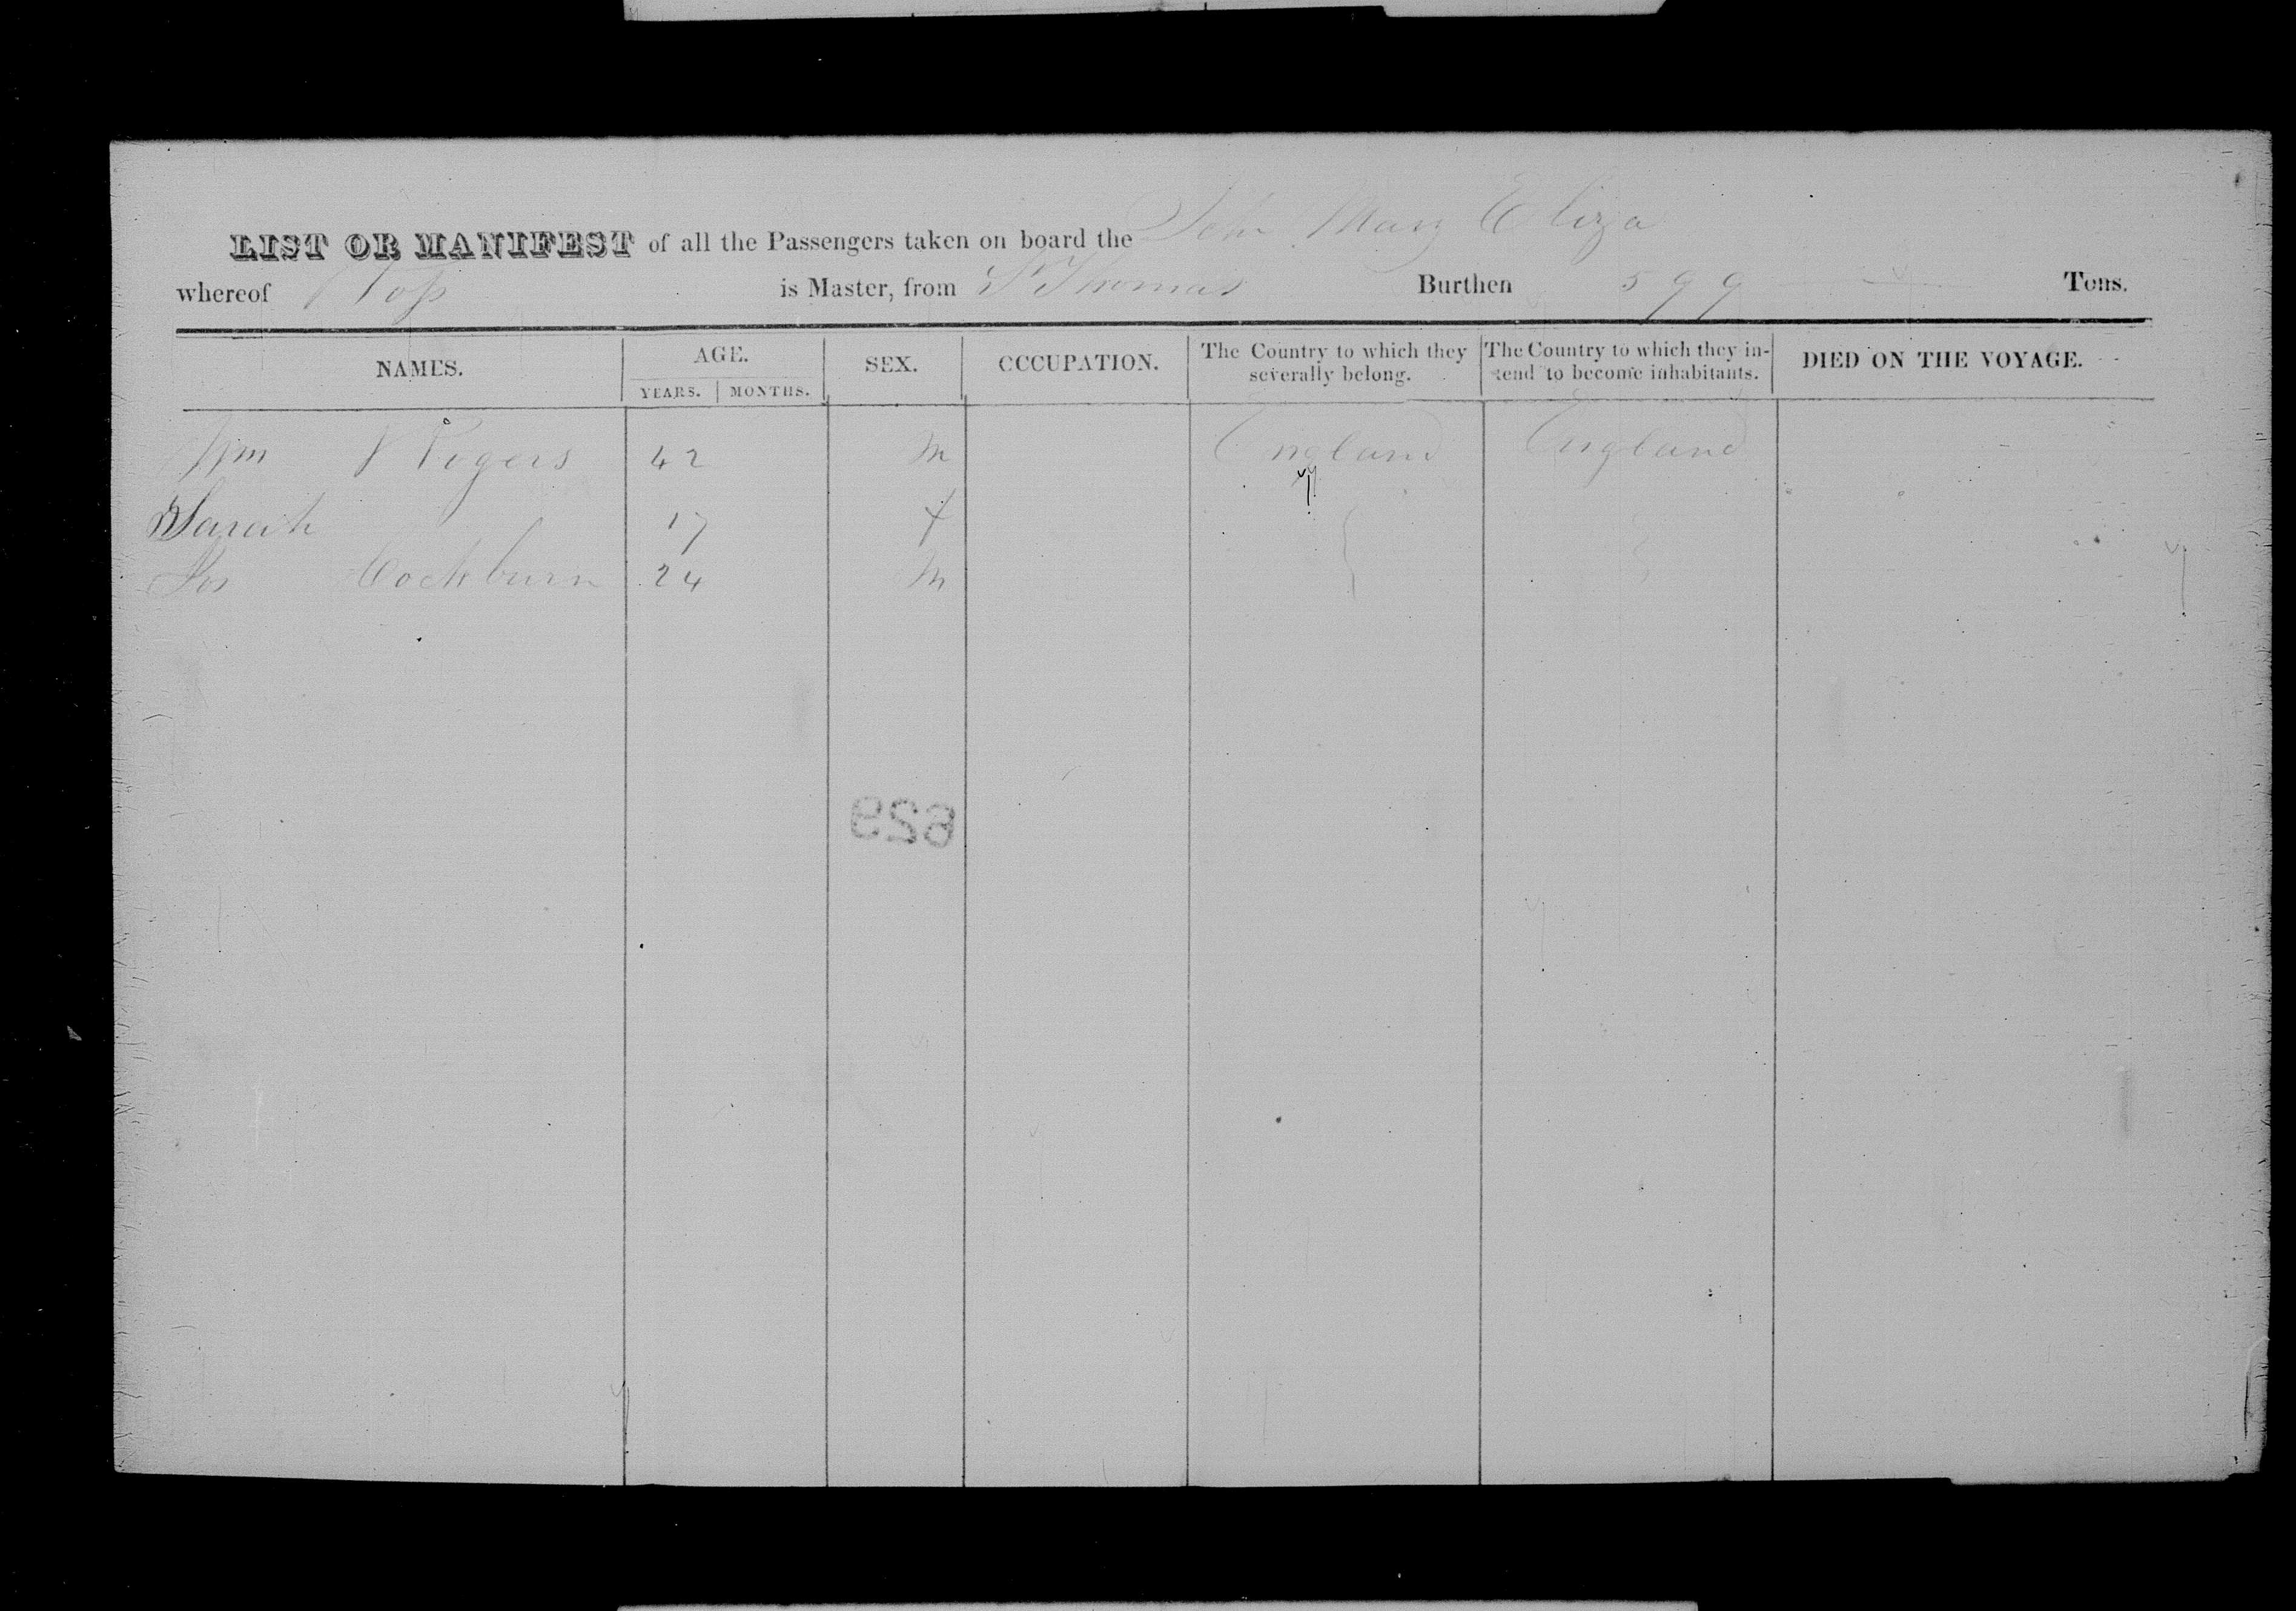 LIST OR MANIFEST of all the Passengers taken on board the Schr Mary Eliza
whereof is Master, from St Thomas Burthen 599 Tons.
NAMES. AGE. SEX. OCCUPATION. The Country to which they severally belong. The Country to which they intend to become inhabitants. DIED ON THE VOYAGE.
YEARS. MONTHS.
Wm V Rogers 42 m England England
Sarah 17 f
Jos Cockburn 24 m
629